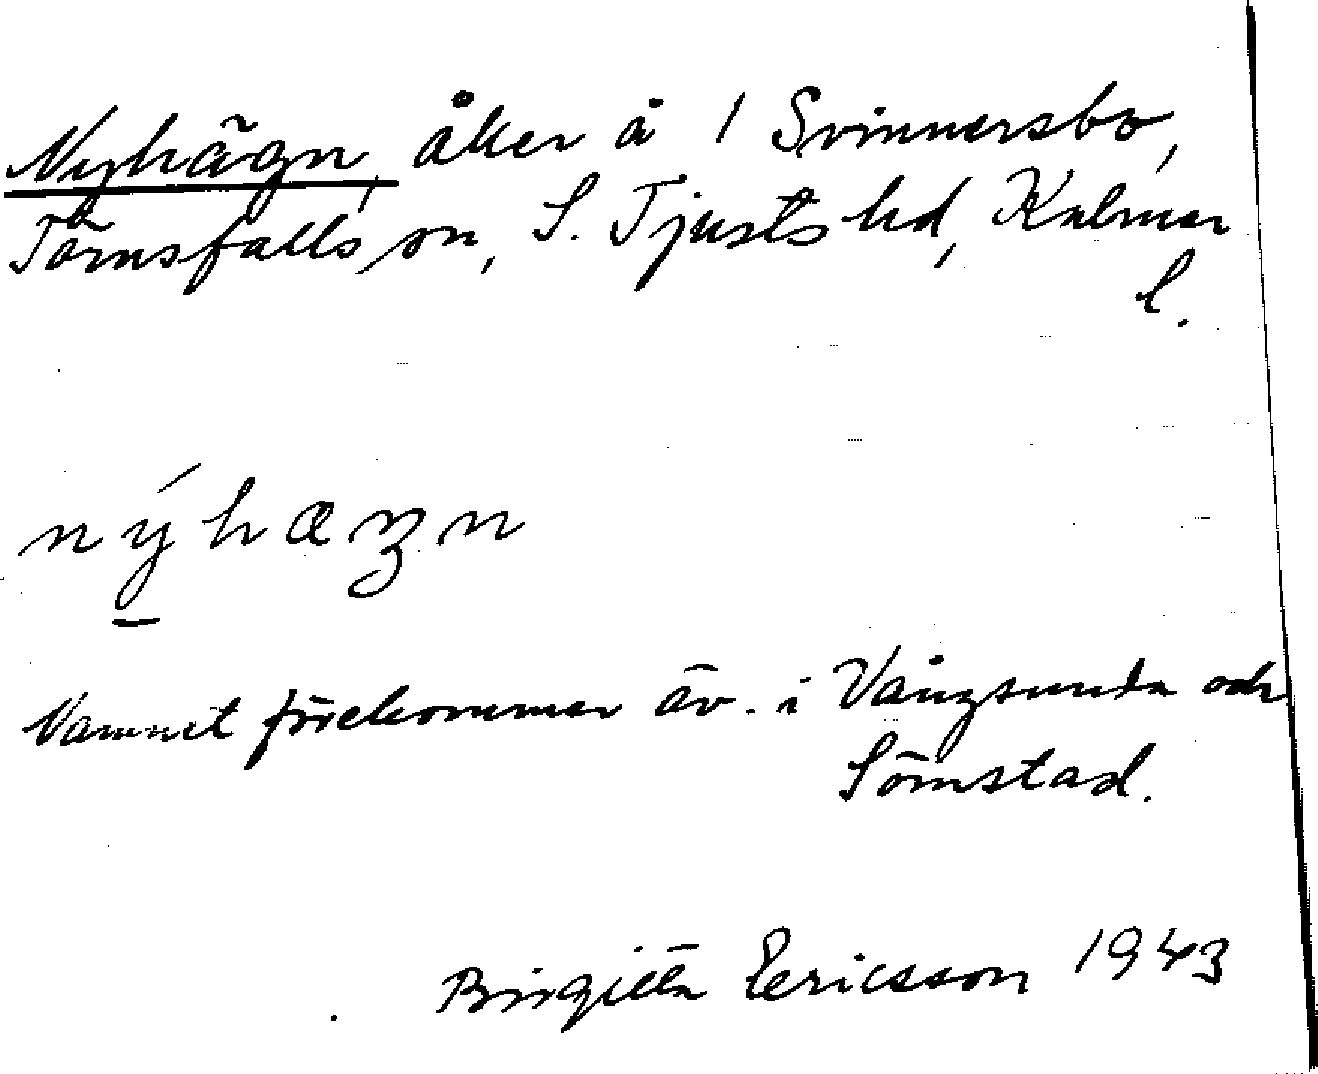 Nyhägn, åker å 1 Svinnersbo,
Törnsfalls sn, S. Tjusts hd, Kalmar
l.
nýhæʒn
Namnet förekommer äv. i Vångsunda och
Sömstad.
Birgitta Ericsson 1943